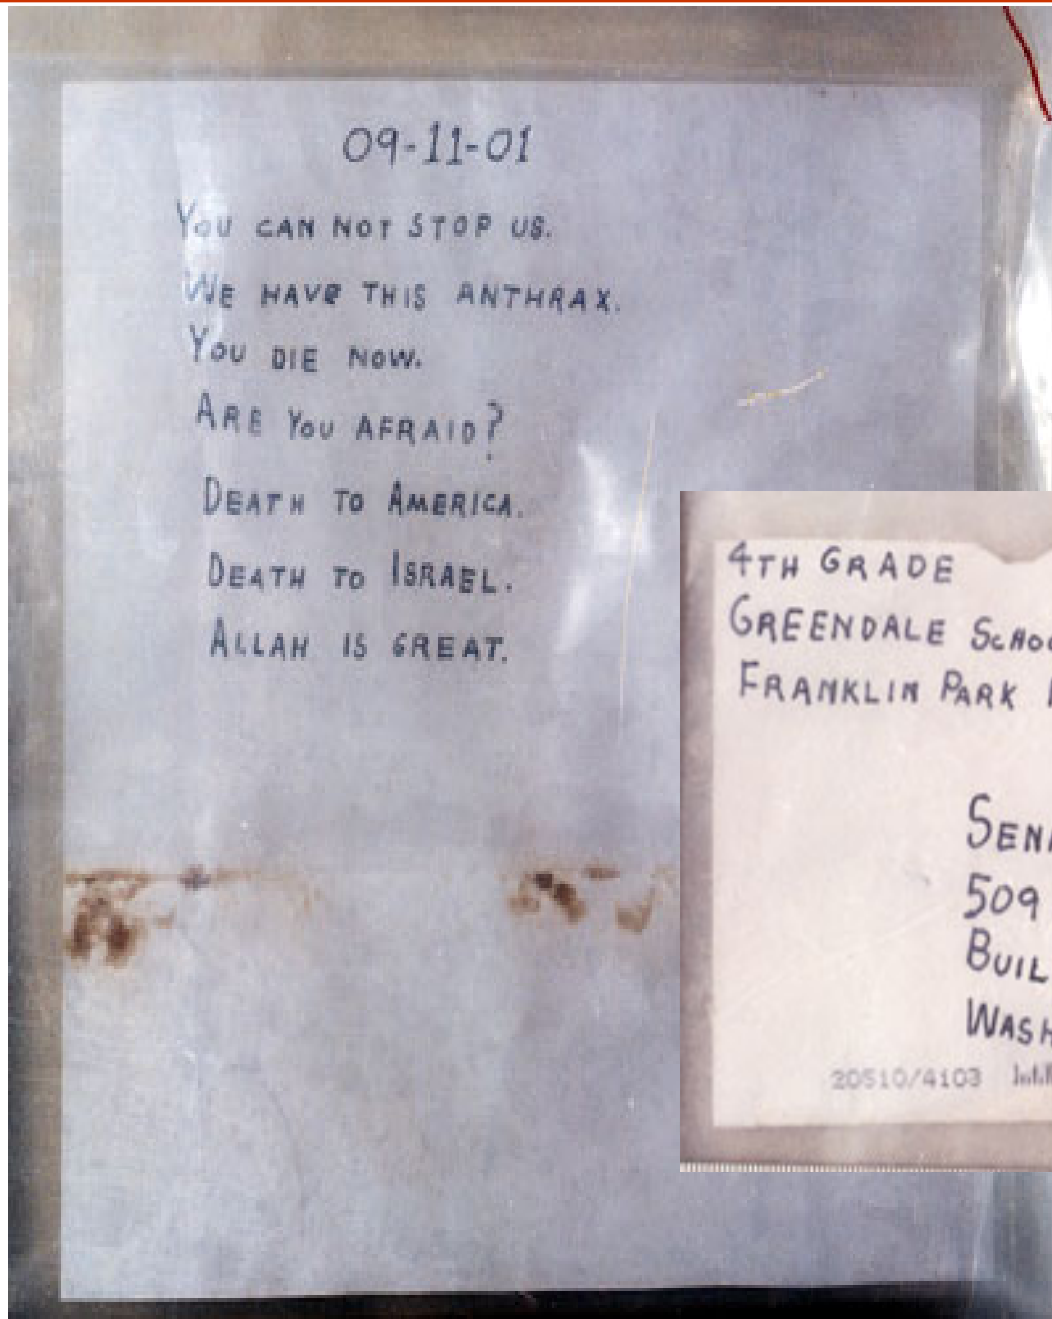 09-11-01
YOU CAN NOT STOP US.
WE HAVE THIS ANTHRAX.
YOU DIE NOW.
ARE YOU AFRAID?
DEATH TO AMERICA.
DEATH TO ISRAEL.
ALLAH IS GREAT.
4TH GRADE
GREENDALE
FRANKLIN PARK
509
20510/4103